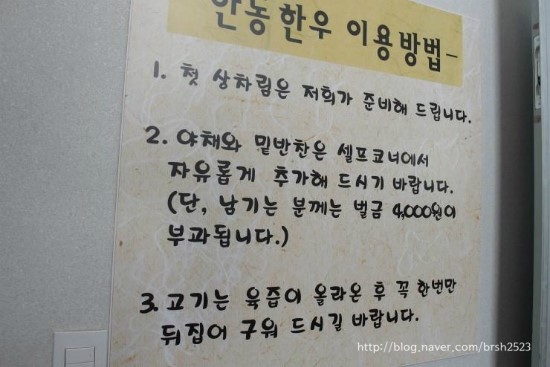 안동한우 이용방법-
1. 첫 상차림은 저희가 준비해 드립니다.
2. 야채와 밑반찬은 셀프코너에서
자유롭게 추가해 드시기 바랍니다.
(단, 남기는 분께는 벌금 4,000원이
부과됩니다.)
3. 고기는 육즙이 올라온 후 꼭 한번만
뒤집어 구워 드시길 바랍니다.
http://blog.naver.com/brsh2523